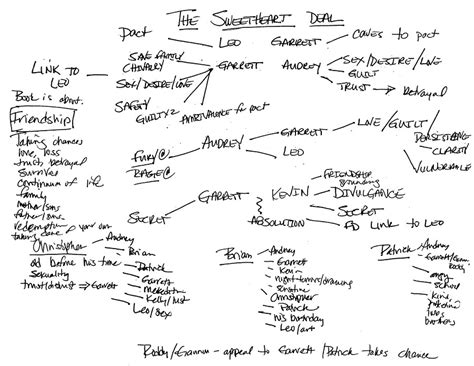 THE SWEETHEART DEAL
pact LEO GARRETT Caves to pact
SAVE FAMILY
CHIVALRY GARRETT AUDREY SEX/DESIRE/LOVE
GUILT
TRUST betrayal
LINK TO LEO
SEX/DESIRE/LOVE
SAFETY
GUILTY2 AMBIVALENCE to pact
Book is about:
Friendship
Taking chances
love, loss
trust, betrayal
Survival
continuum of life
family
mother/sons
father/sons
redemption
taking care your own
FURY/@
RAGE/@
AUDREY GARRETT LOVE/GUILT/
PERSEVERING
CLARITY
VULNERABLE
LEO
SECRET GARRETT KEVIN FRIENDSHIP
grounding
DIVULGANCE
SECRET
ABSOLUTION AD LINK to LEO
Christopher Audrey
Brian
Patrick
Garrett
Meredith
Kelly/lust
Leo/sex
ad define his time
sexuality
trust/distrust Garrett
Brian Audrey
Garrett
Kevin
night terrors/drawing
sensitive
Christopher
Patrick
his birthday
Leo/art
Patrick Audrey
Garrett
angry
school
kind
brothers
appeal to Garrett/Patrick takes chance